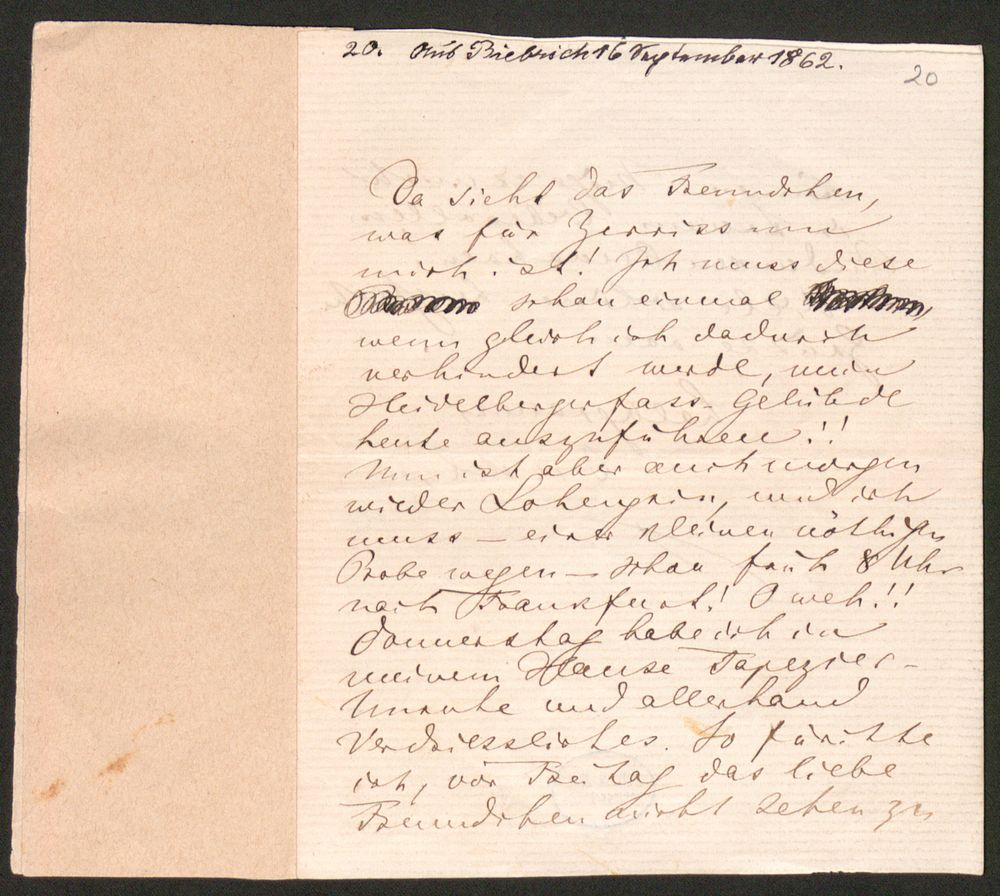 20. Aus Biebrich 16 September 1862.
20
Da sieht das Freundchen,
was für Zerriss um
mich ist! Ich muss diese
schon einmal
wenn gleich ich dadurch
verhindert werde, mein
Heidelbergerfass-Gelübde
heute auszuführen!!
Nun ist aber auch morgen
wieder Lohengrin, und ich
muss — einer kleinen nöthigen
Probe wegen — schon früh 8 Uhr
nach Frankfurt! O weh!!
Donnerstag habe ich in
meinem Hause Tapezier-
Unruhe und allerhand
Verdriessliches. So fürchte
ich, vor Freitag das liebe
Freundchen nicht sehen zu